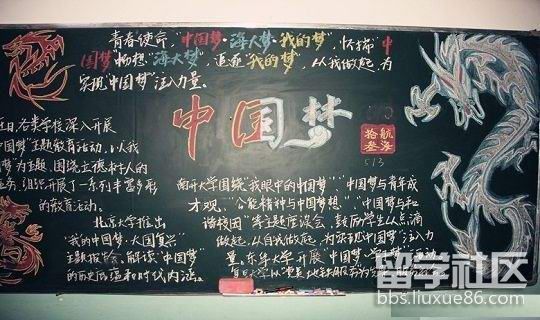 青春使命,"中国梦·海大梦·我的梦",怀揣"中
国梦"畅想"海大梦",追逐"我的梦",从我做起,为
实现"中国梦"注入力量。
中国梦
拾航
叁海
513
近日,各类学校深入开展
中国梦"主题教育活动,以"我
梦"为主题,围绕立德树人的
任务,组织开展了一系列丰富多彩
的教育活动。
北京大学推出
"我的中国梦·大国复兴"
主题报告会,解读"中国梦"
的历史渊源和时代内涵。
南开大学围绕"我眼中的中国梦"、"中国梦与青年成
才观"、"公能精神与中国梦想"、"中国梦与和
谐校园"等主题座谈会,鼓励学生从点滴
做起,从自我做起,为实现中国梦注入力
量,东华大学开展"中国梦
活动
留学社区
bbs.liuxue86.com